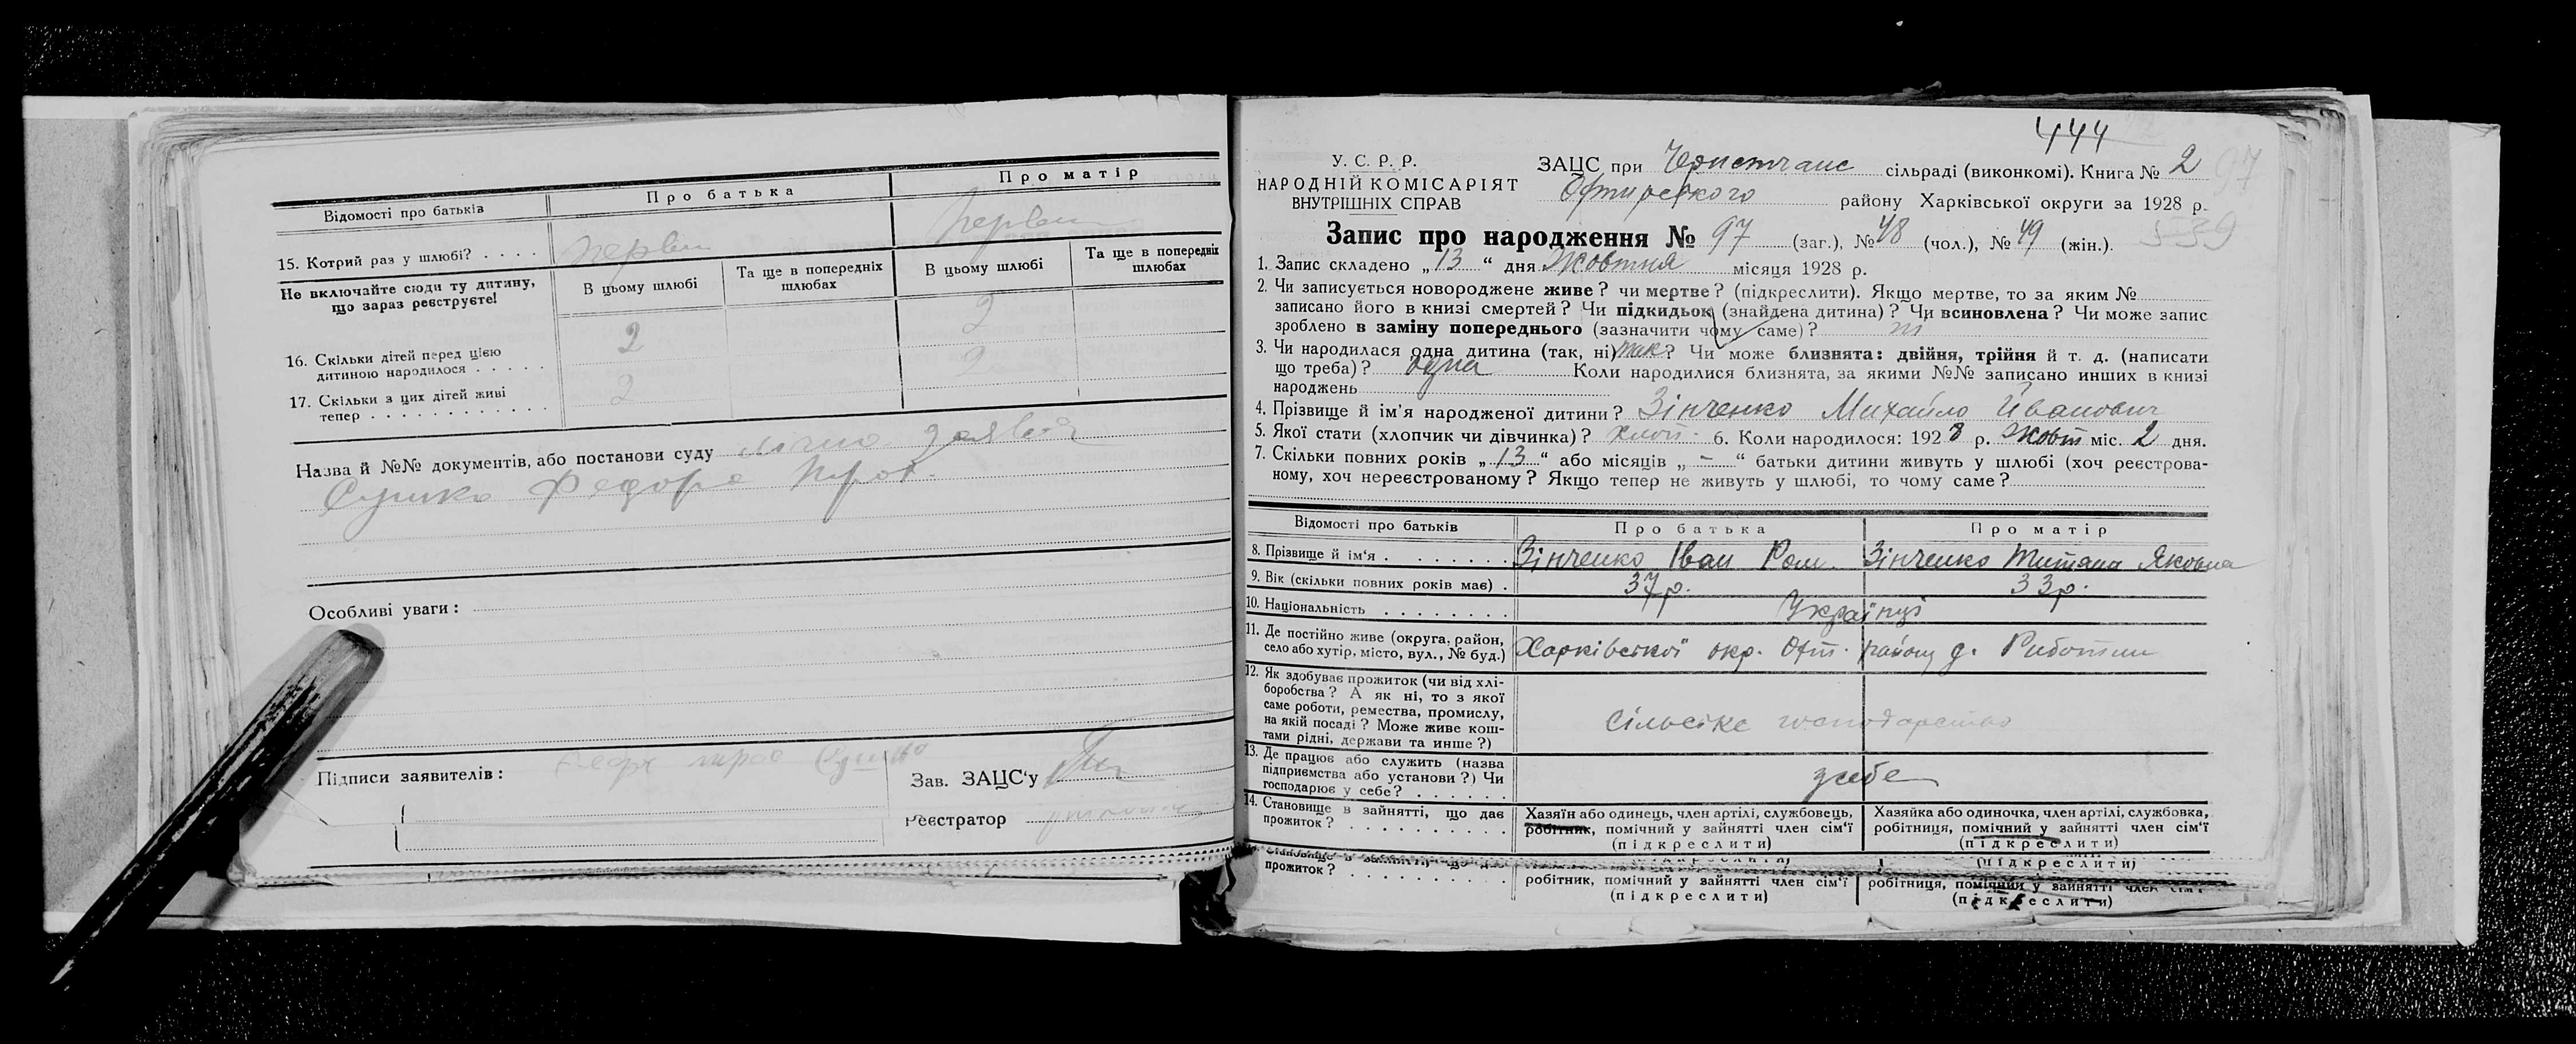 Відомості про батьків
Про батька
Про матір
15. Котрий раз у шлюбі? . . . .
Не включайте сюди ту дитину,
що зараз реєструєте!
В цьому шлюбі
Та ще в попередніх
шлюбах
В цьому шлюбі
Та ще в попередніх
шлюбах
16. Скільки дітей перед цією
дитиною народилося . . . . .
2
2
17. Скільки з цих дітей живі
тепер . . . . . . . . . . . .
2
2
Назва й №№ документів, або постанови суду
Сушко Федора
Особливі уваги:
Підписи заявителів:
Зав. ЗАЦС'у
Реєстратор
444
У. С. Р. Р.
НАРОДНІЙ КОМІСАРІЯТ
ВНУТРІШНІХ СПРАВ
ЗАЦС при сільраді (виконкомі). Книга № 2
97
району Харківської округи за 1928 р.
539
Запис про народження № 97 (заг.), № 48 (чол.), № 49 (жін.).
1. Запис складено „13“ дня Жовтня місяця 1928 р.
2. Чи записується новороджене живе? чи мертве? (підкреслити). Якщо мертве, то за яким №
записано його в книзі смертей? Чи підкидьок (знайдена дитина)? Чи всиновлена? Чи може запис
зроблено в заміну попереднього (зазначити чому саме)?
3. Чи народилася одна дитина (так, ні) так? Чи може близнята: двійня, трійня й т. д. (написати
що треба)? одна Коли народилися близнята, за якими №№ записано инших в книзі
народжень
4. Прізвище й ім'я народженої дитини? Зінченко Михайло Иванович
5. Якої стати (хлопчик чи дівчинка)? хлоп. 6. Коли народилося: 1928 р. Жовт міс. 2 дня.
7. Скільки повних років „13“ або місяців „-“ батьки дитини живуть у шлюбі (хоч реєстрова-
ному, хоч нереєстрованому? Якщо тепер не живуть у шлюбі, то чому саме?
Відомості про батьків
Про батька
Про матір
8. Прізвище й ім'я . . . . . . .
Зінченко Іван Ром.
Зінченко Титяна Яковна
9. Вік (скільки повних років має) .
37 р.
33 р.
10. Національність . . . . . . .
Українці
11. Де постійно живе (округа, район,
село або хутір, місто, вул., № буд.)
Харківської окр. Охт. району
12. Як здобуває прожиток (чи від хлі-
боробства? А як ні, то з якої
саме роботи, ремества, промислу,
на якій посаді? Може живе кош-
тами рідні, держави та инше?)
Сільське господарство
13. Де працює або служить (назва
підприємства або установи?) Чи
господарює у себе? . . . . . .
у себе
14. Становище в зайнятті, що дає
прожиток? . . . . . . . . . .
Хазяїн або одинець, член артілі, службовець,
робітник, помічний у зайнятті член сім'ї
(підкреслити)
Хазяйка або одиночка, член артілі, службовка,
робітниця, помічний у зайнятті член сім'ї
(підкреслити)
(підкреслити)
прожиток? . . . . . . . . . .
робітник, помічний у зайнятті член сім'ї
(підкреслити)
робітниця, помічний у зайнятті член сім'ї
(підкреслити)